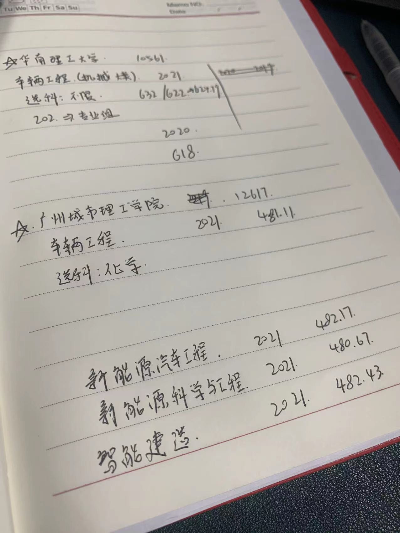 Tu We Th Fr Sa Su
Memo NO.
Date / /
☆华南理工大学 10561
车辆工程(机械大类) 2021
选科:不限 632/622
202 专业组
2020
618
☆广州城市理工学院 12617
车辆工程 2021 481.11
选科:化学
新能源汽车工程 2021 482.17
新能源科学与工程 2021 480.67
智能建造 2021 482.43